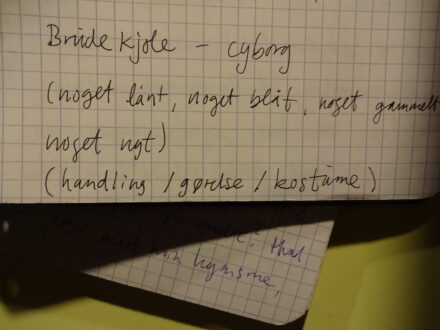 Brudekjole - cyborg
(noget lånt, noget blåt, noget gammelt
noget nyt)
(handling / gørelse / kostume)